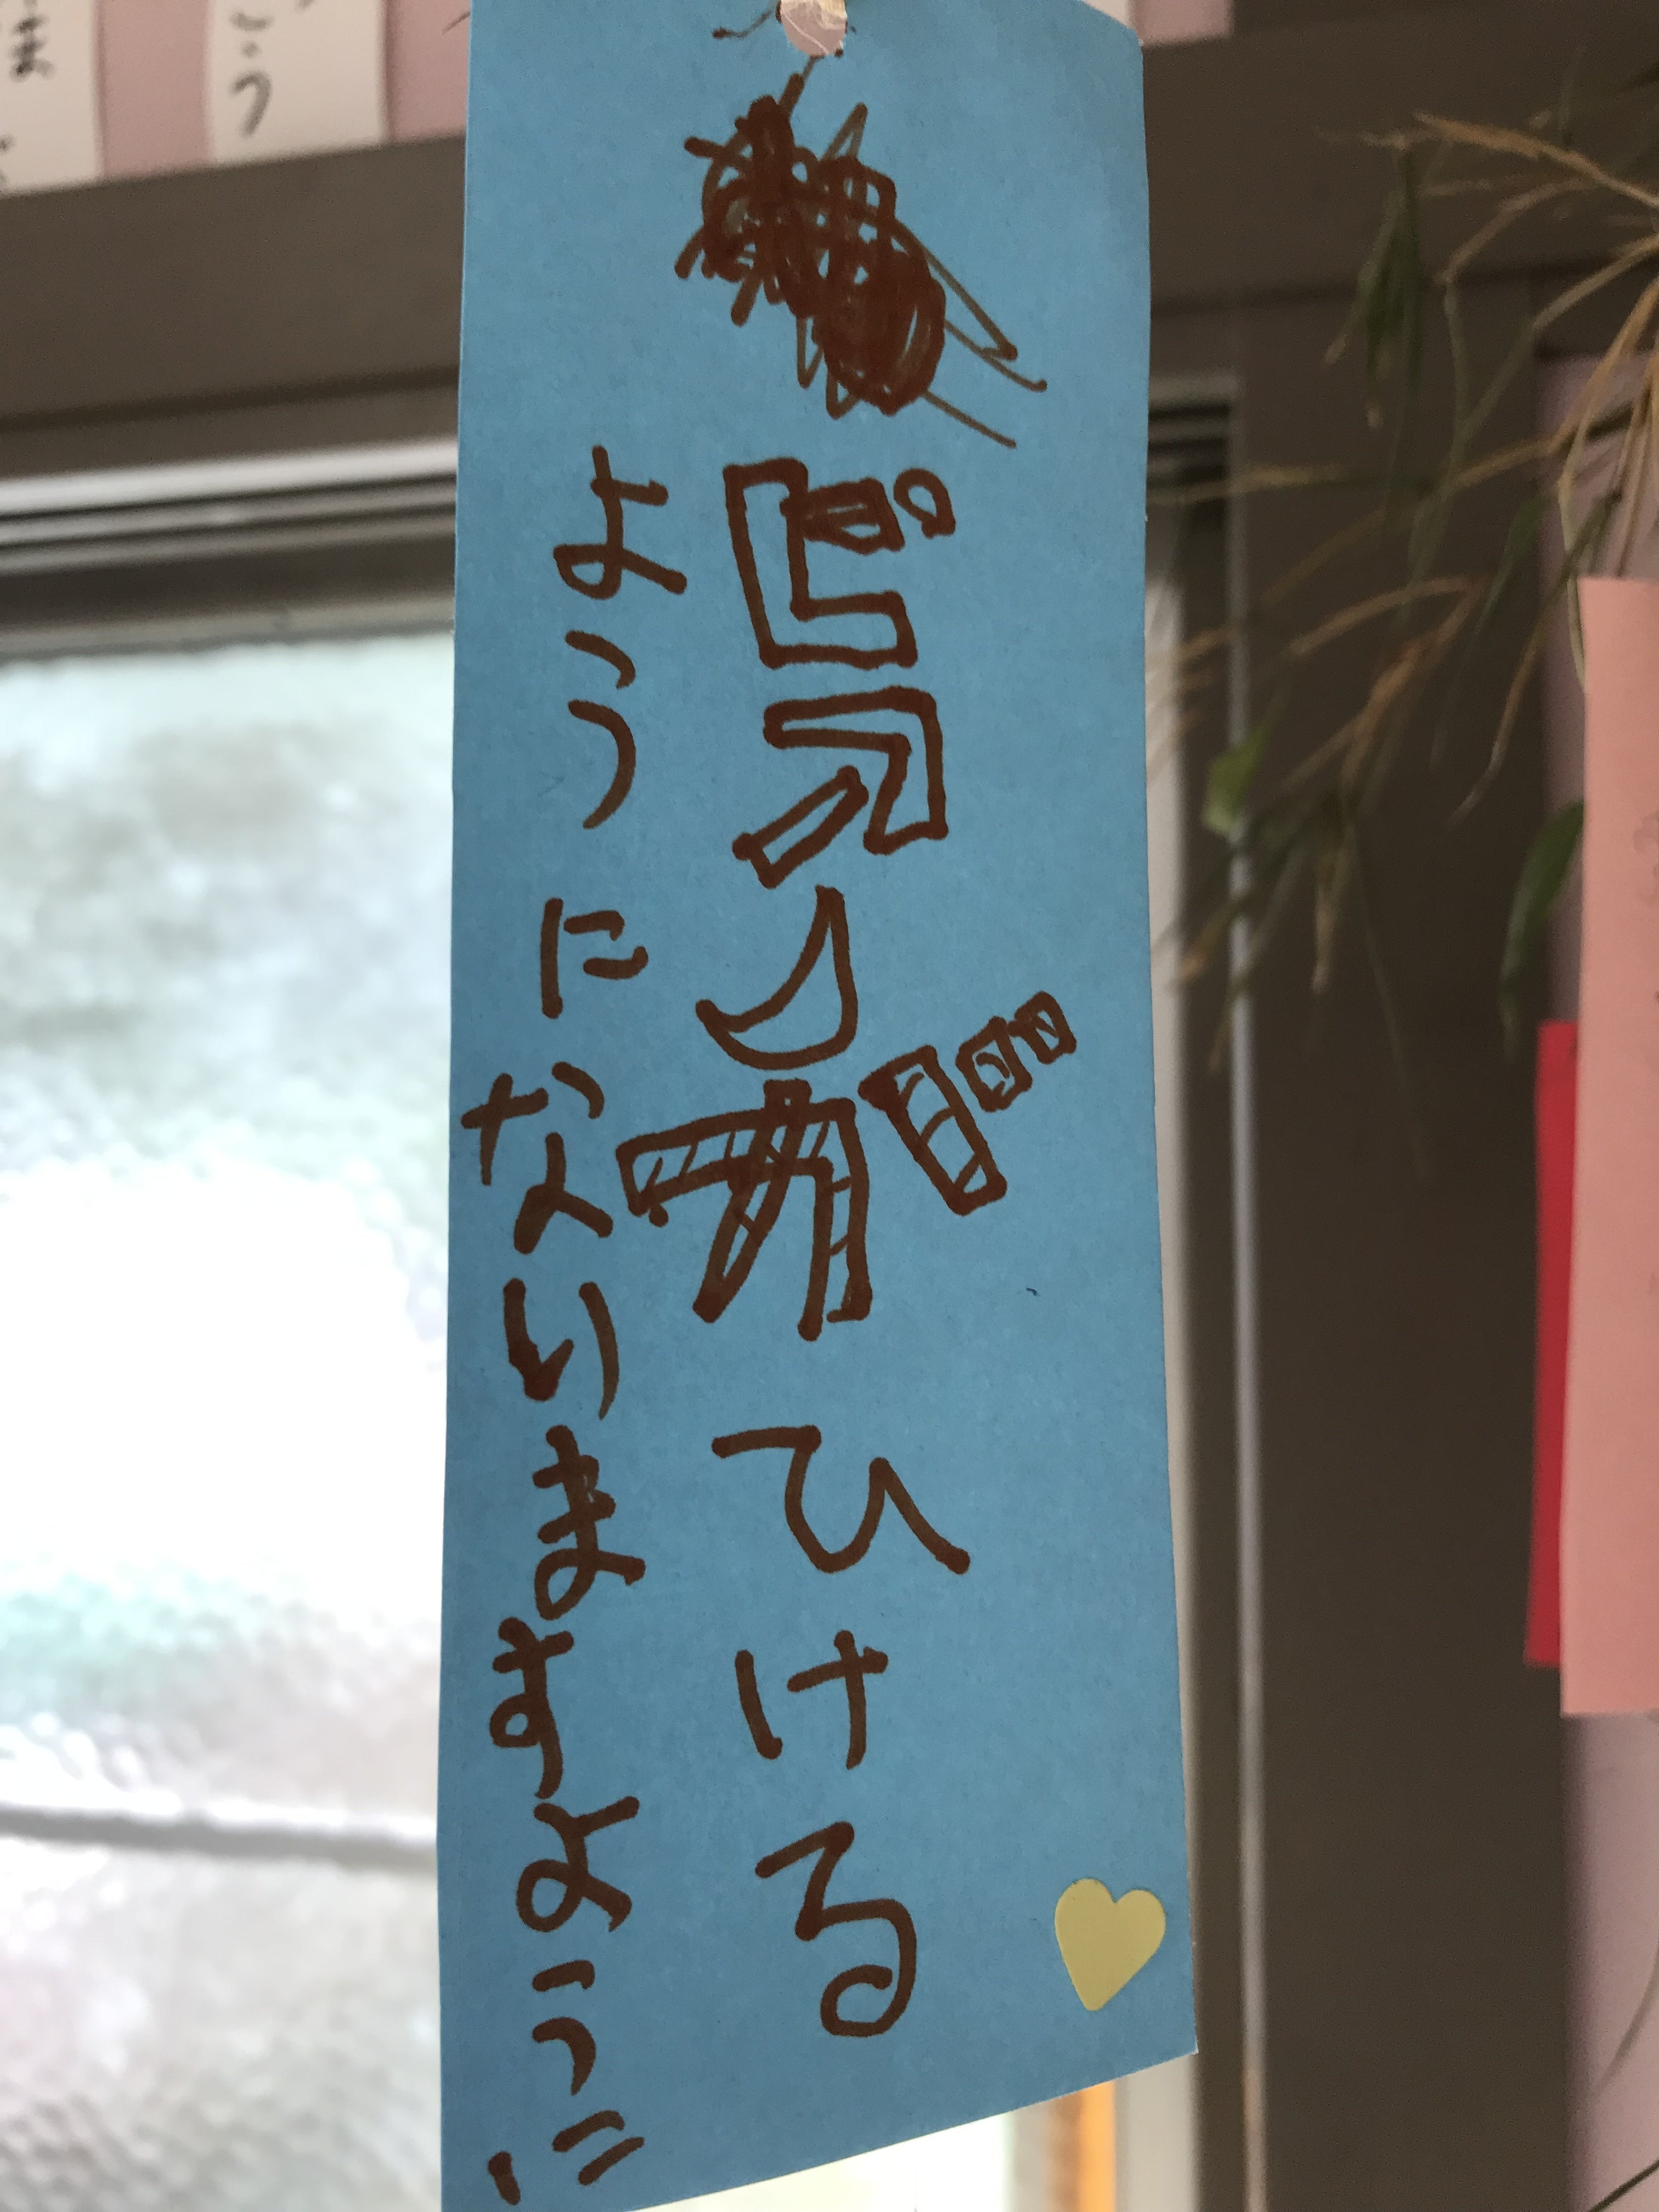 ピアノがひける
ようになりますように
こう
ま